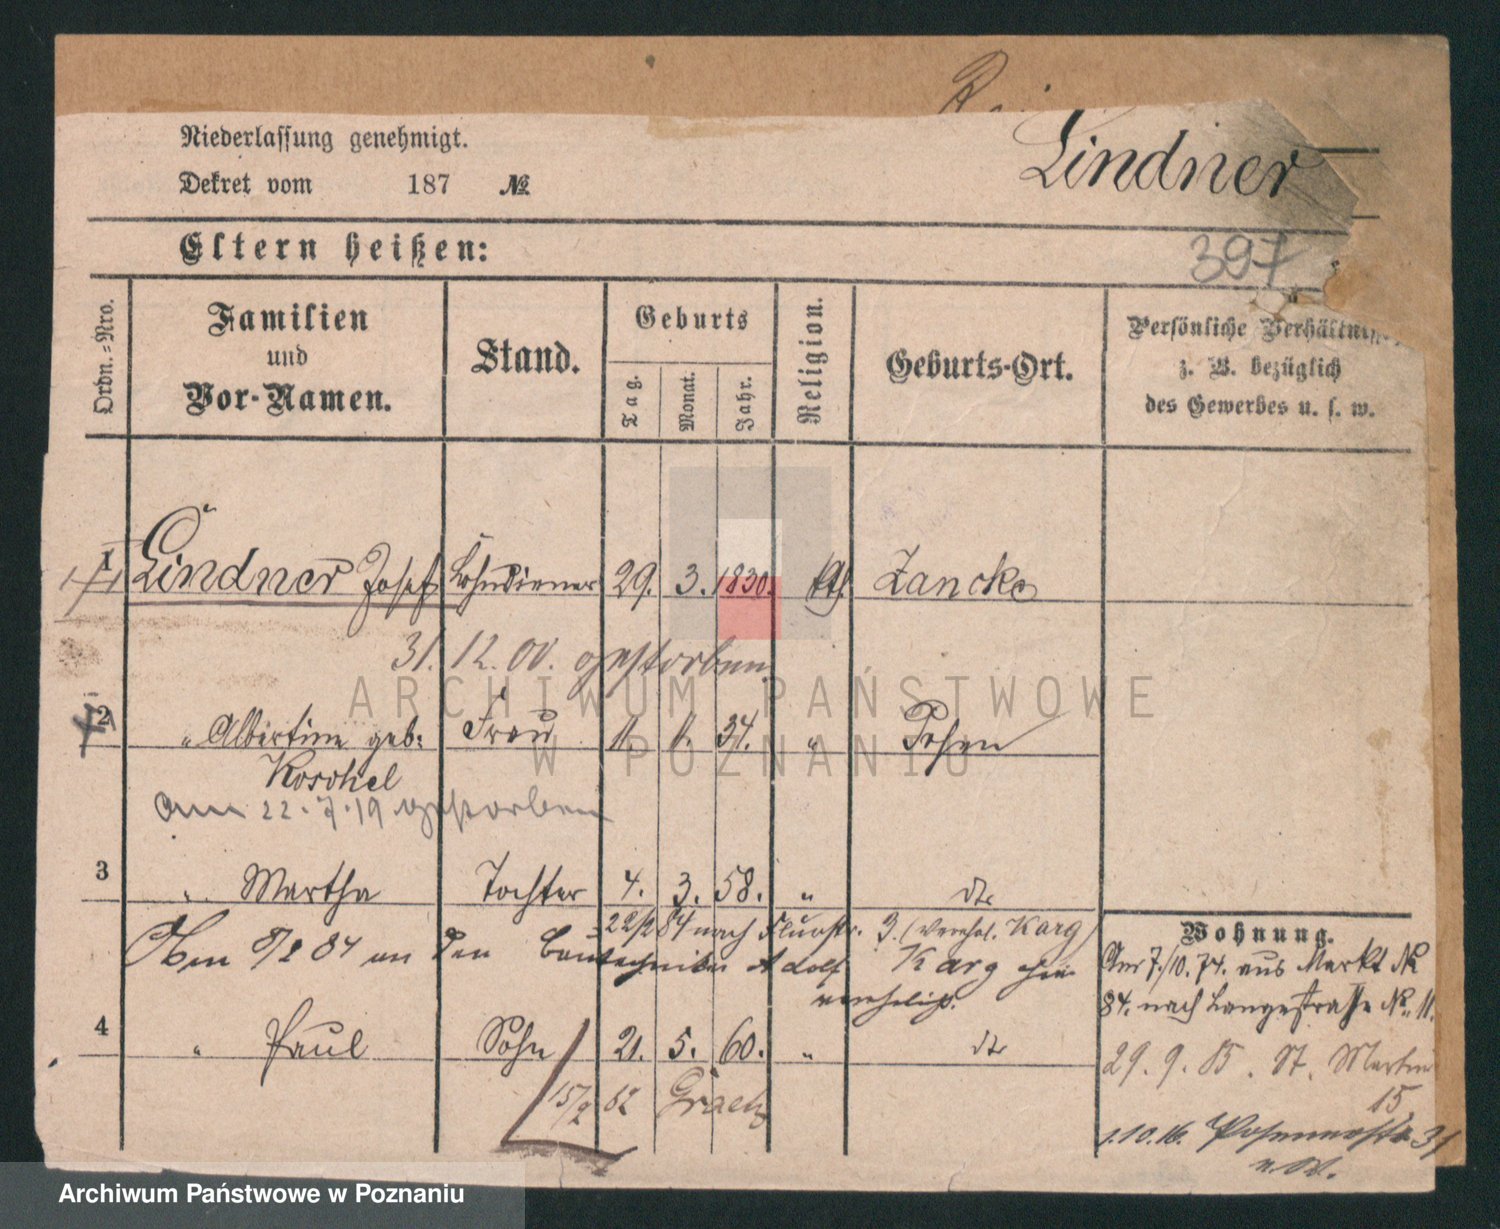 Niederlassung genehmigt.
Dekret vom 187 №
Lindner
Eltern heißen:
397
Ordn.-Nro.
Familien und Vor-Namen.
Stand.
Geburts
Tag.
Monat.
Jahr.
Religion.
Geburts-Ort.
Persönliche
z. B. bezüglich
des Gewerbes u. s. w.
1 Lindner Josef Lohndiener 29. 3. 1830. kth. Zancke
31. 12. 00. gestorben.
2 " Albertine geb: Frau 11. 34. " Posen
Koschel
am 22.7.19 gestorben
3 " Martha Tochter 4. 3. 58. " dto
84 nach Flurstr. 3. (verehel. Karg)
84 an den Bautechniker Adolf Karg
verehelicht.
4 " Paul Sohn 21. 5. 60. " dto
15/2 82 Graetz
Wohnung.
Am 7./10. 74. aus Markt №
84. nach Langestrasse №. 11.
29. 9. 85. St. Martin
15.
1.10.16. 31
ARCHIWUM PAŃSTWOWE
W POZNANIU
Archiwum Państwowe w Poznaniu